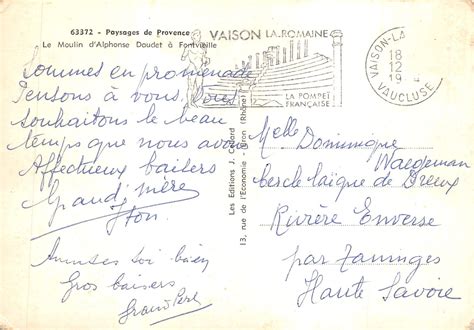 63372 - Paysages de Provence
Le Moulin d'Alphonse Daudet à Fontvieille
Sommes en promenade
Pensons à vous. Vous
souhaitons le beau
temps que nous avons
Affectueux baisers
Grand' mère
Amuses toi bien
Gros baisers
Grand Père
Les Editions J. Cellard
13, rue de l'Economie - Bron (Rhône)
VAISON LA ROMAINE
LA POMPEÏ
FRANÇAISE
VAISON-LA
18
12
19
VAUCLUSE
Melle Dominique
Waegeman
Cercle laïque de Dreux
Rivière Enverse
par Taninges
Haute Savoie